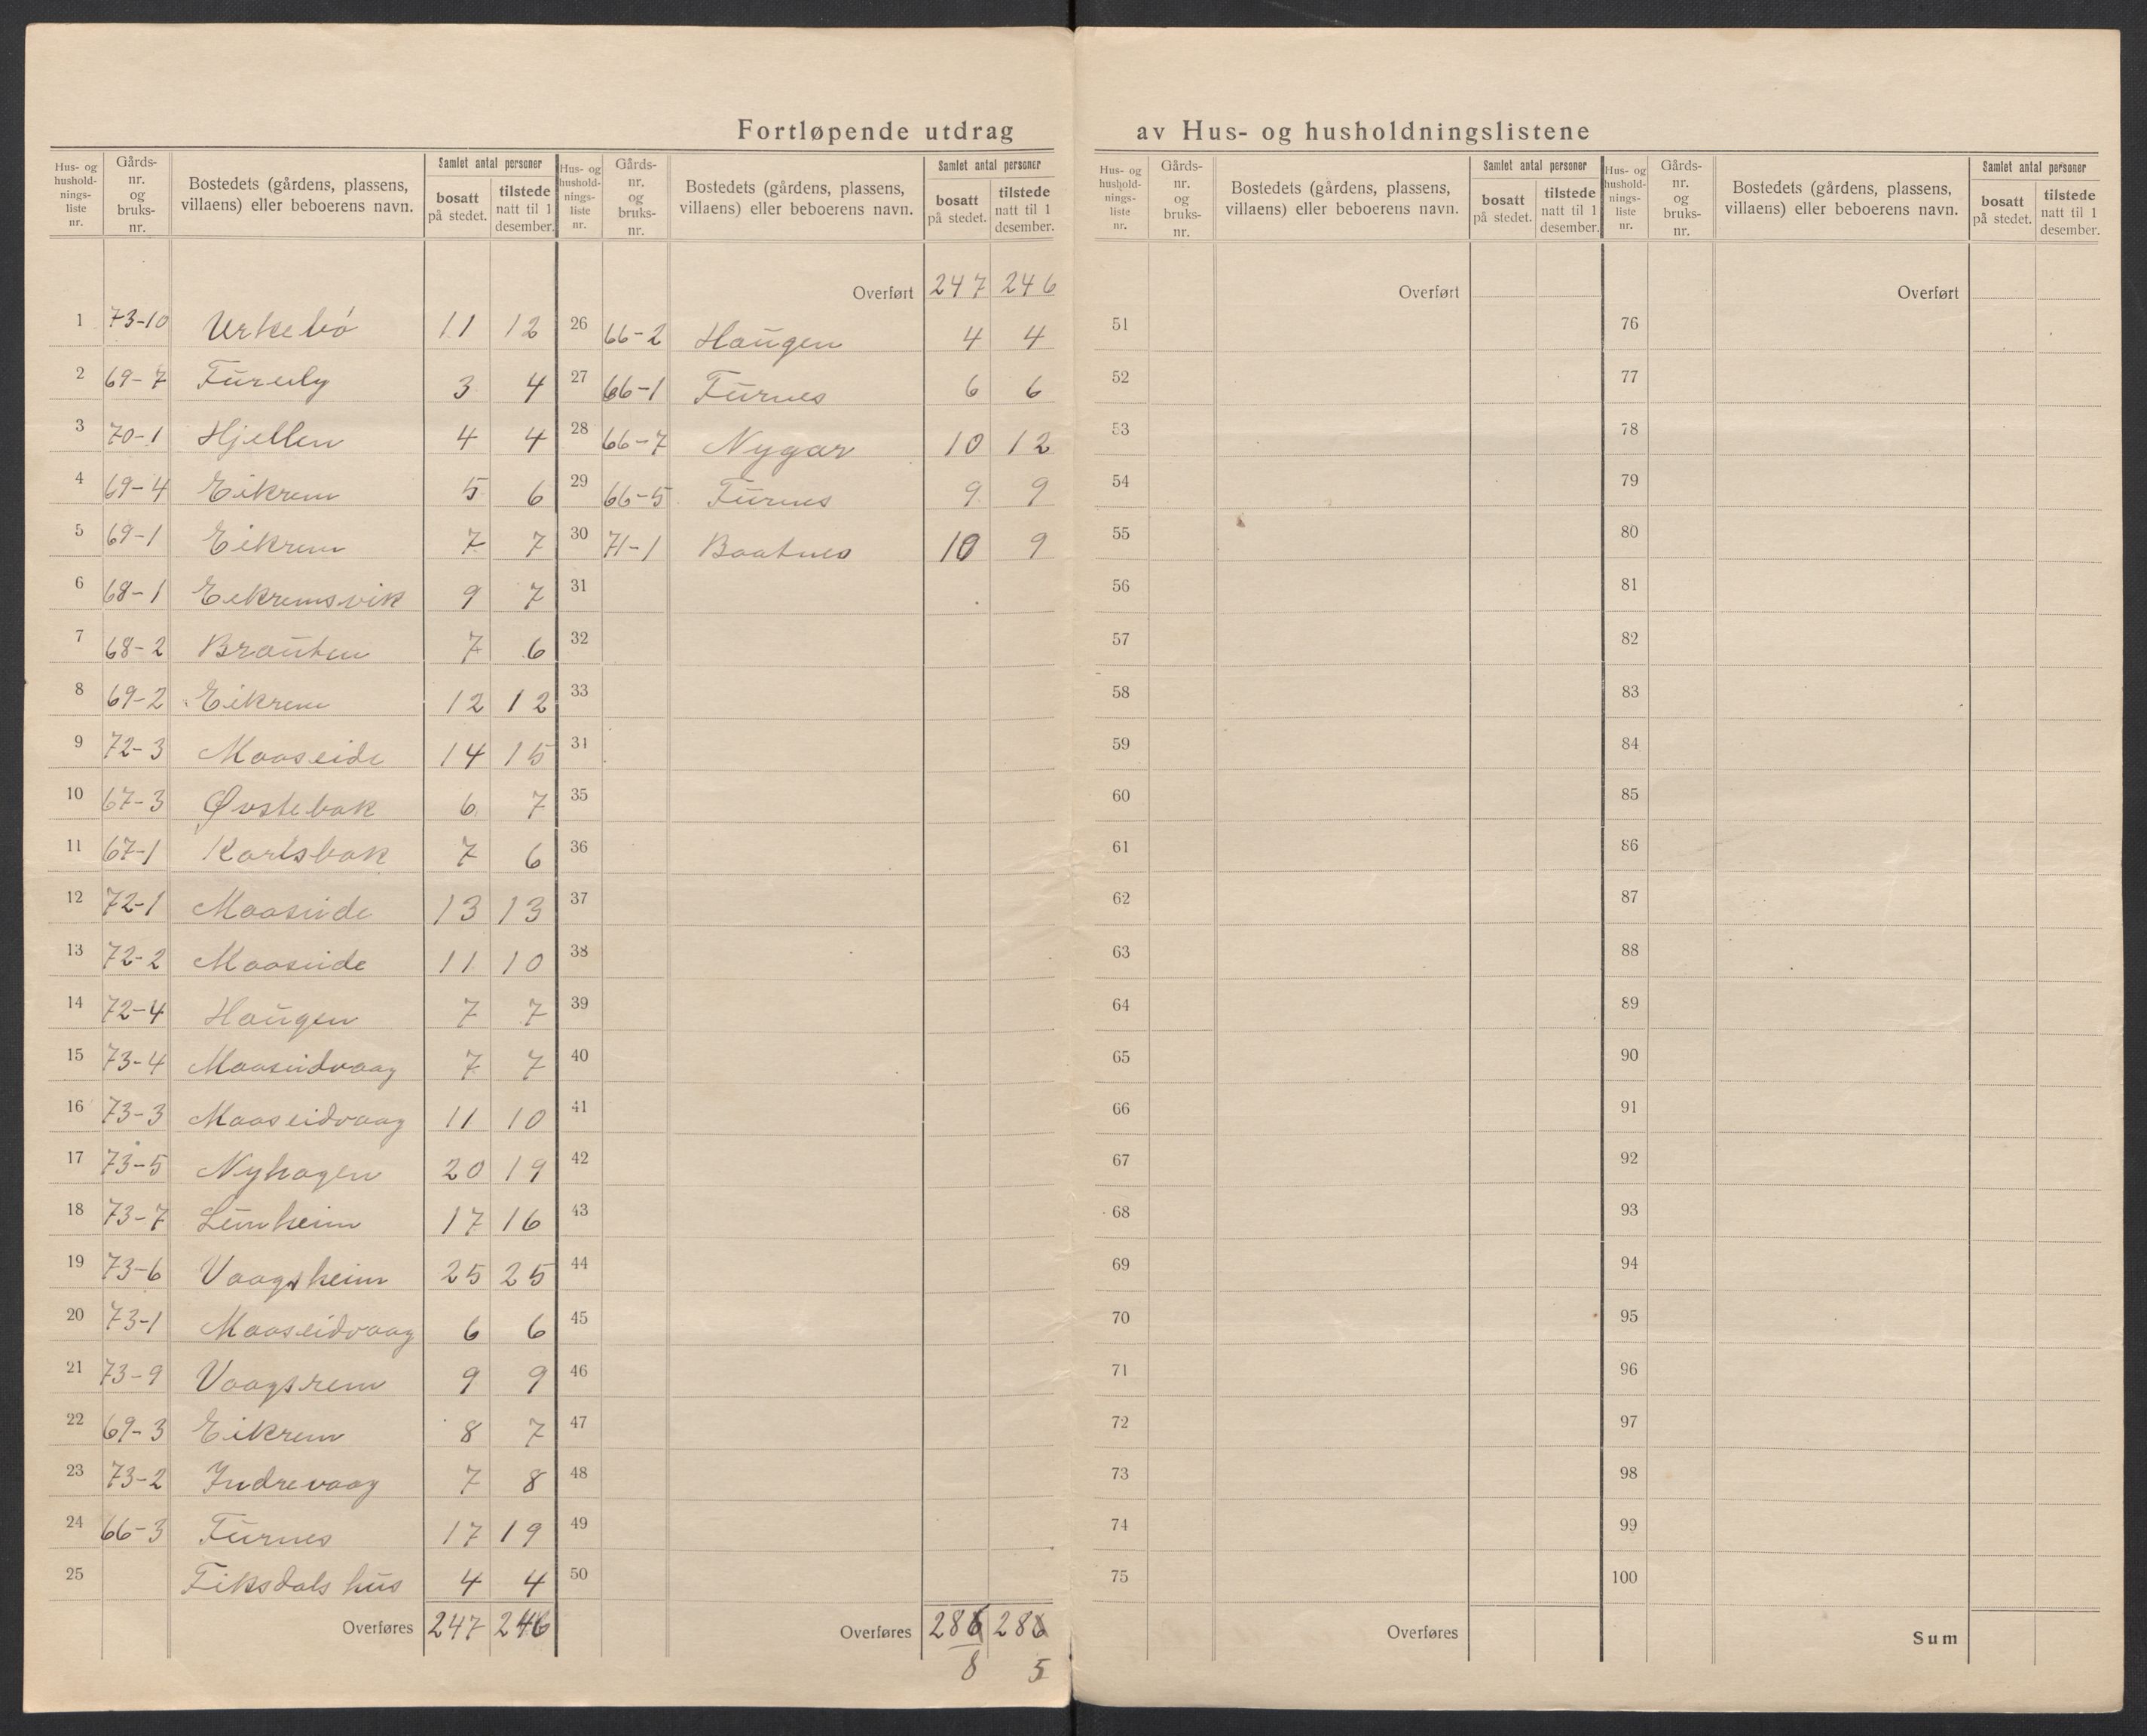 Fortløpende utdrag av Hus- og husholdningslistene
Hus- og husholdningsliste nr.
Gårds-nr. og bruks-nr.
Bostedets (gårdens, plassens, villaens) eller beboerens navn.
Samlet antal personer
bosatt på stedet.
tilstede natt til 1 desember.
1 73-10 Urkebø 11 12
2 69-7 Furely 3 4
3 70-1 Hjellen 4 4
4 69-4 Eikrem 5 6
5 69-1 Eikrem 7 7
6 68-1 Eikremsvik 9 7
7 68-2 Brauten 7 6
8 69-2 Eikrem 12 12
9 72-3 Maaseide 14 15
10 67-3 Øvstebak 6 7
11 67-1 Karlsbak 7 6
12 72-1 Maaseide 13 13
13 72-2 Maaseide 11 10
14 72-4 Haugen 7 7
15 73-4 Maaseidvaag 7 7
16 73-3 Maaseidvaag 11 10
17 73-5 Nyhagen 20 19
18 73-7 Lunheim 17 16
19 73-6 Vaagsheim 25 25
20 73-1 Maaseidvaag 6 6
21 73-9 Vaagsrem 9 9
22 69-3 Eikrem 8 7
23 73-2 Indrevaag 7 8
24 66-3 Furnes 17 19
25 Fiksdals hus 4 4
Overføres 247 246
Hus- og husholdningsliste nr.
Gårds-nr. og bruks-nr.
Bostedets (gårdens, plassens, villaens) eller beboerens navn.
Samlet antal personer
bosatt på stedet.
tilstede natt til 1 desember.
Overført 247 246
26 66-2 Haugen 4 4
27 66-1 Furnes 6 6
28 66-7 Nygar 10 12
29 66-5 Furnes 9 9
30 71-1 Baatnes 10 9
31
32
33
34
35
36
37
38
39
40
41
42
43
44
45
46
47
48
49
50
Overføres 286 286
8 5
Hus- og husholdningsliste nr.
Gårds-nr. og bruks-nr.
Bostedets (gårdens, plassens, villaens) eller beboerens navn.
Samlet antal personer
bosatt på stedet.
tilstede natt til 1 desember.
Overført
51
52
53
54
55
56
57
58
59
60
61
62
63
64
65
66
67
68
69
70
71
72
73
74
75
Overføres
Hus- og husholdningsliste nr.
Gårds-nr. og bruks-nr.
Bostedets (gårdens, plassens, villaens) eller beboerens navn.
Samlet antal personer
bosatt på stedet.
tilstede natt til 1 desember.
Overført
76
77
78
79
80
81
82
83
84
85
86
87
88
89
90
91
92
93
94
95
96
97
98
99
100
Sum